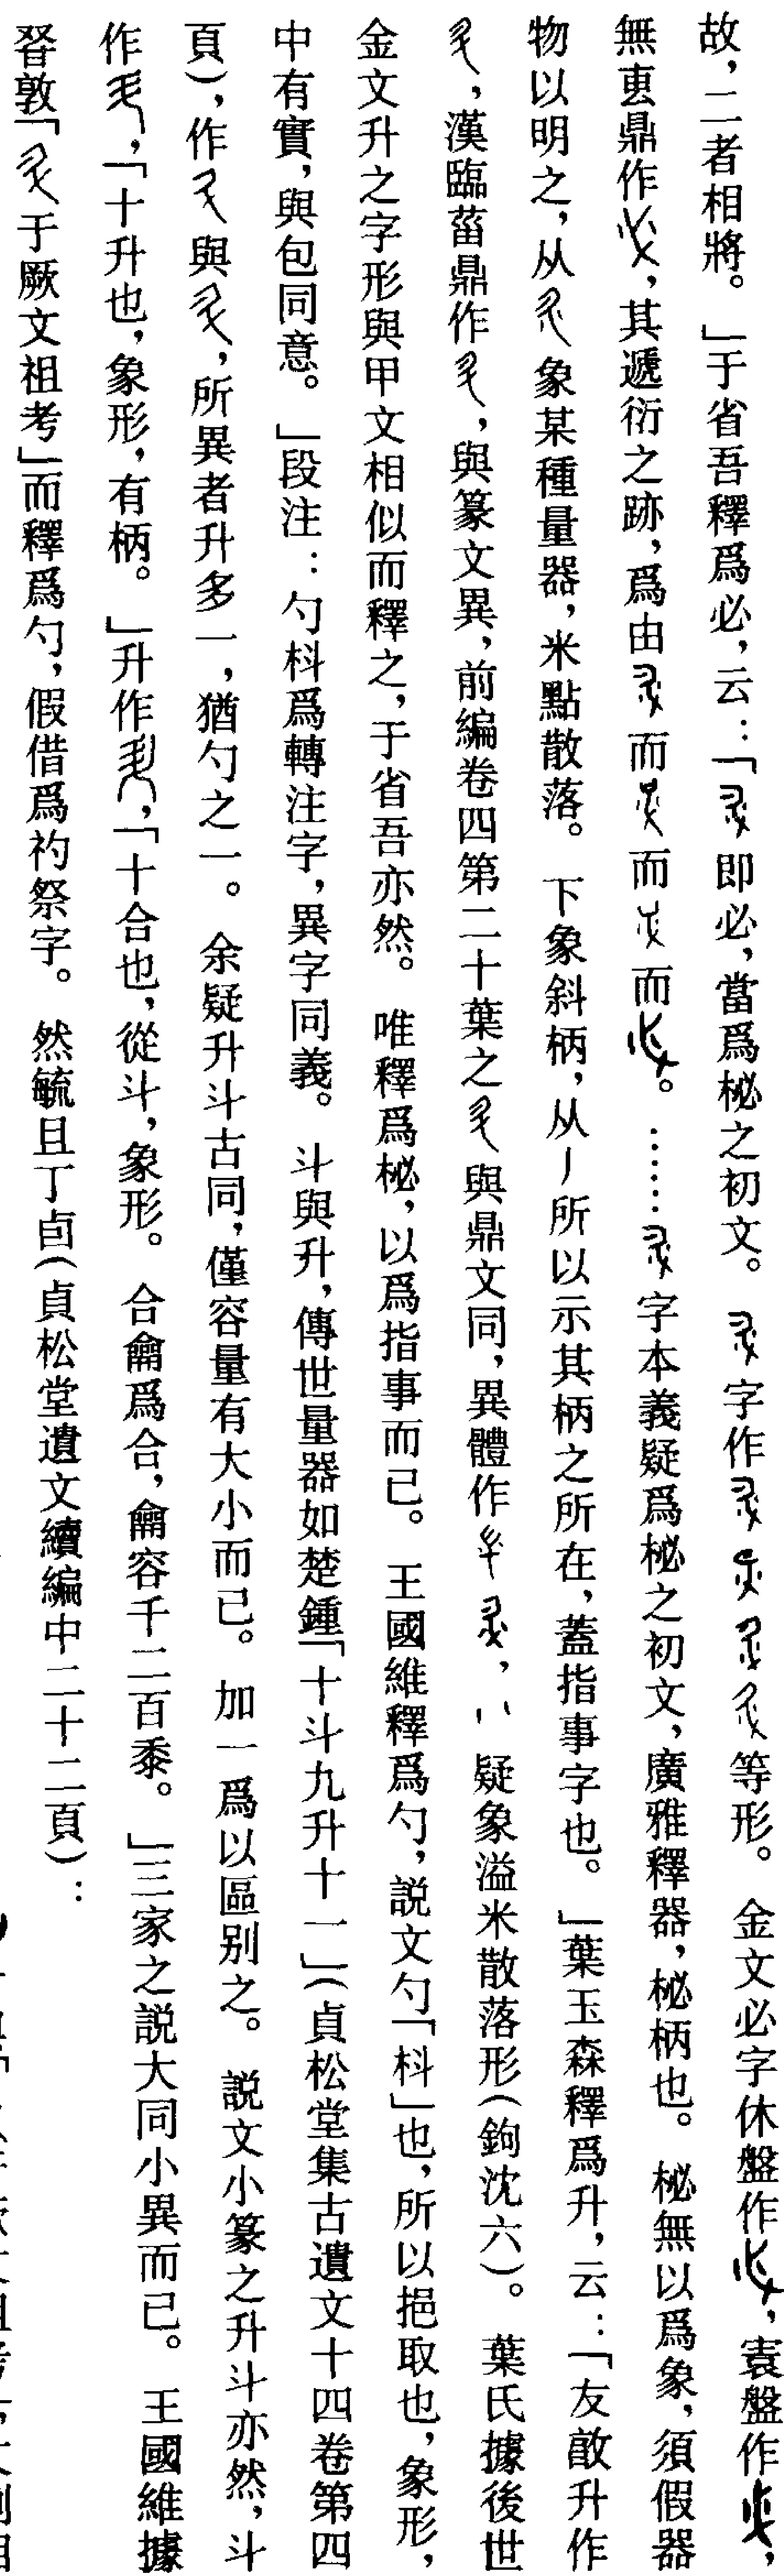 故，二者相將。」于省吾釋爲必，云：「即必，當爲柲之初文。字作等形。金文必字休盤作，袁盤作，
無叀鼎作，其遞衍之跡，爲由而而而。……字本義疑爲柲之初文，廣雅釋器，柲柄也。柲無以爲象，須假器
物以明之，从象某種量器，米點散落。下象斜柄，从丿所以示其柄之所在，蓋指事字也。」葉玉森釋爲升，云：「友敢升作
，漢臨菑鼎作，與篆文異，前編卷四第二十葉之與鼎文同，異體作，疑象溢米散落形（鉤沈六）。葉氏據後世
金文升之字形與甲文相似而釋之，于省吾亦然。唯釋爲柲，以爲指事而已。王國維釋爲勺，説文勺「枓」也，所以挹取也，象形，
中有實，與包同意。」段注：勺枓爲轉注字，異字同義。斗與升，傳世量器如楚鍾「十斗九升十一」（貞松堂集古遺文十四卷第四
頁），作與，所異者升多一，猶勺之一。余疑升斗古同，僅容量有大小而已。加一爲以區别之。説文小篆之升斗亦然，斗
作，「十升也，象形，有柄。」升作，「十合也，從斗，象形。合龠爲合，龠容千二百黍。」三家之説大同小異而已。王國維據
敦「于厥文祖考」而釋爲勺，假借爲礿祭字。然毓且丁卣（貞松堂遺文續編中二十二頁）：